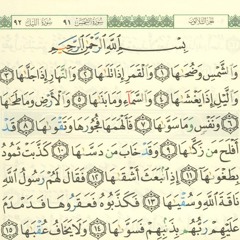 الجزء الثلاثون سورة الشمس ٩١ سورة الليل ٩٢
بِسْمِ ٱللَّهِ ٱلرَّحْمَٰنِ ٱلرَّحِيمِ
وَٱلشَّمْسِ وَضُحَىٰهَا ١ وَٱلْقَمَرِ إِذَا تَلَىٰهَا ٢ وَٱلنَّهَارِ إِذَا جَلَّىٰهَا ٣
وَٱلَّيْلِ إِذَا يَغْشَىٰهَا ٤ وَٱلسَّمَآءِ وَمَا بَنَىٰهَا ٥ وَٱلْأَرْضِ وَمَا طَحَىٰهَا ٦
وَنَفْسٍ وَمَا سَوَّىٰهَا ٧ فَأَلْهَمَهَا فُجُورَهَا وَتَقْوَىٰهَا ٨ قَدْ
أَفْلَحَ مَن زَكَّىٰهَا ٩ وَقَدْ خَابَ مَن دَسَّىٰهَا ١٠ كَذَّبَتْ ثَمُودُ
بِطَغْوَىٰهَآ ١١ إِذِ ٱنۢبَعَثَ أَشْقَىٰهَا ١٢ فَقَالَ لَهُمْ رَسُولُ ٱللَّهِ
نَاقَةَ ٱللَّهِ وَسُقْيَٰهَا ١٣ فَكَذَّبُوهُ فَعَقَرُوهَا فَدَمْدَمَ
عَلَيْهِمْ رَبُّهُم بِذَنۢبِهِمْ فَسَوَّىٰهَا ١٤ وَلَا يَخَافُ عُقْبَٰهَا ١٥